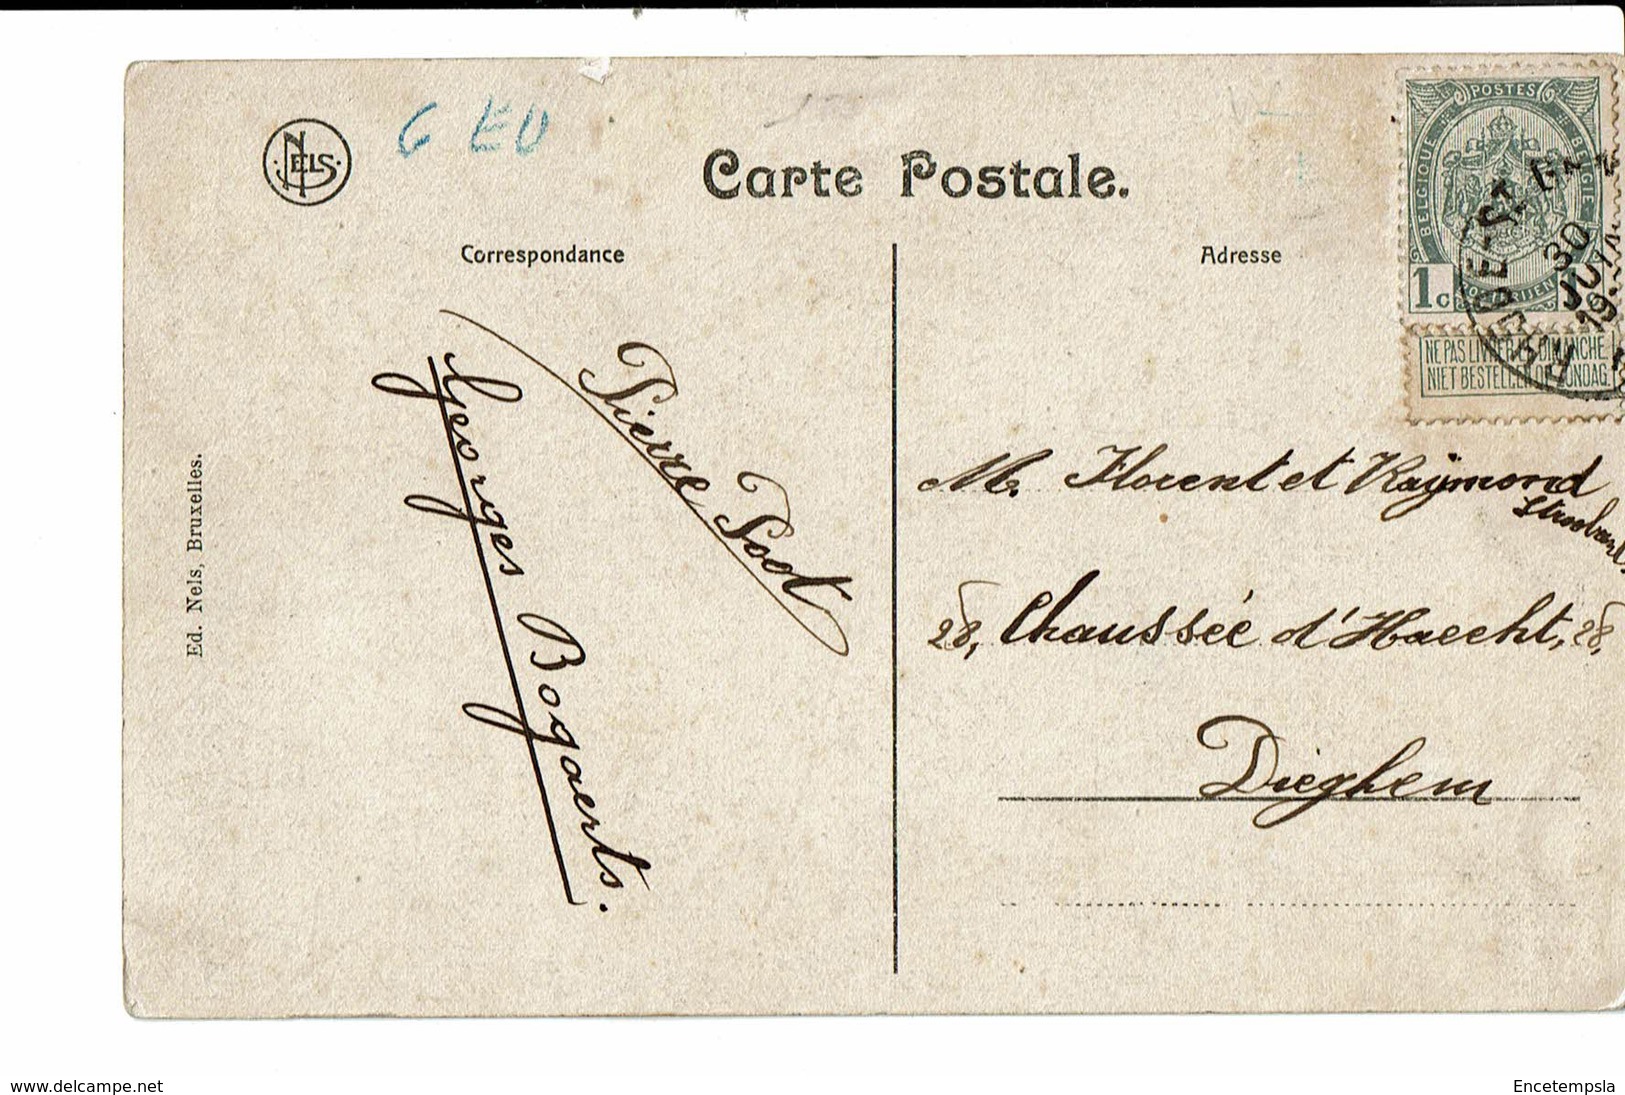 NELS
6 EU
Carte Postale.
Correspondance
Adresse
POSTES
BELGIQUE
BELGIË
1c
POSTERIJEN
NE PAS LIVRER LE DIMANCHE
NIET BESTELLEN OP ZONDAG
30
JUI
19
Pierre Poot
Georges Bogaerts.
M. Florent et Raÿmond
28, Chaussée d'Haecht, 28,
Dieghem
Ed. Nels, Bruxelles.
www.delcampe.net
Encetempsla